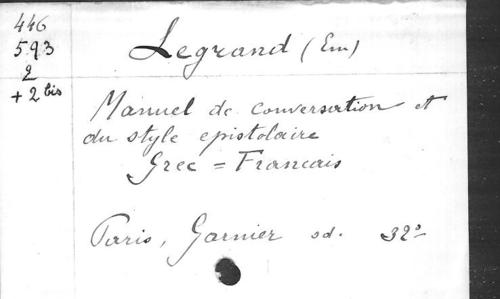 446
593
2
+ 2 bis
Legrand (Em)
Manuel de conversation et
du style epistolaire
Grec = Francais
Paris, Garnier sd. 32º